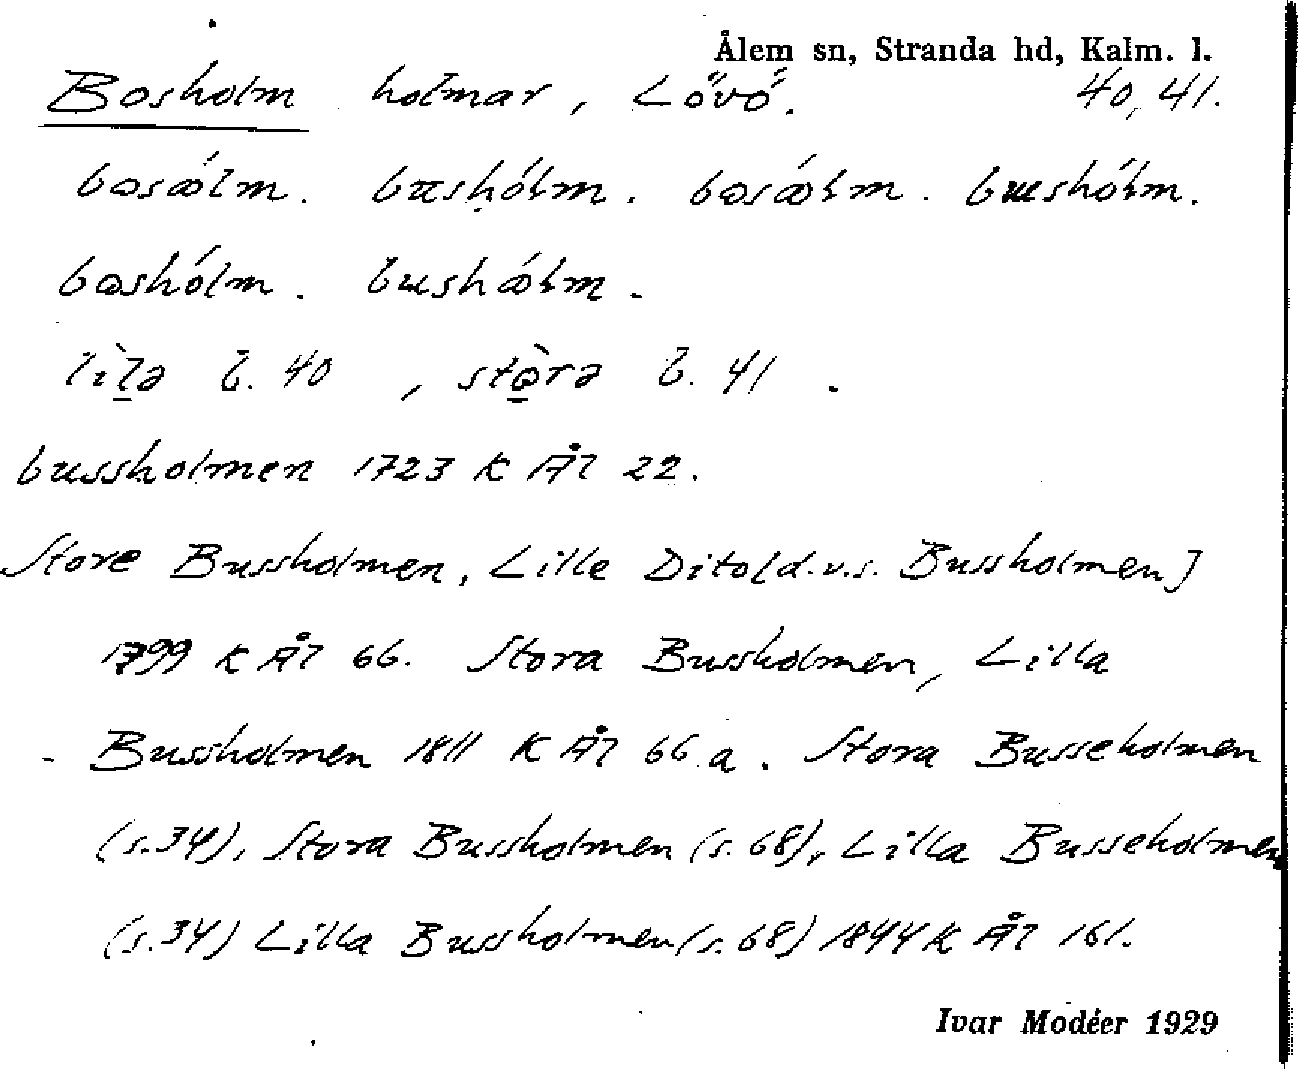 Ålem sn, Stranda hd, Kalm. l.
Bosholm holmar, Lövö. 40, 41.
bosholm. bushólm.
lìla b. 40, stòra b. 41.
bussholmen 1723 K Ål 22.
Store Bussholmen, Lille Dito [d.v.s. Bussholmen]
1799 K Ål 66. Stora Bussholmen, Lilla
Bussholmen 1811 K Ål 66 a. Stora Busseholmen
(s.34), Stora Bussholmen (s. 68), Lilla Busseholmen
(s.34) Lilla Bussholmen (s. 68) 1844 K Ål 161.
Ivar Modéer 1929